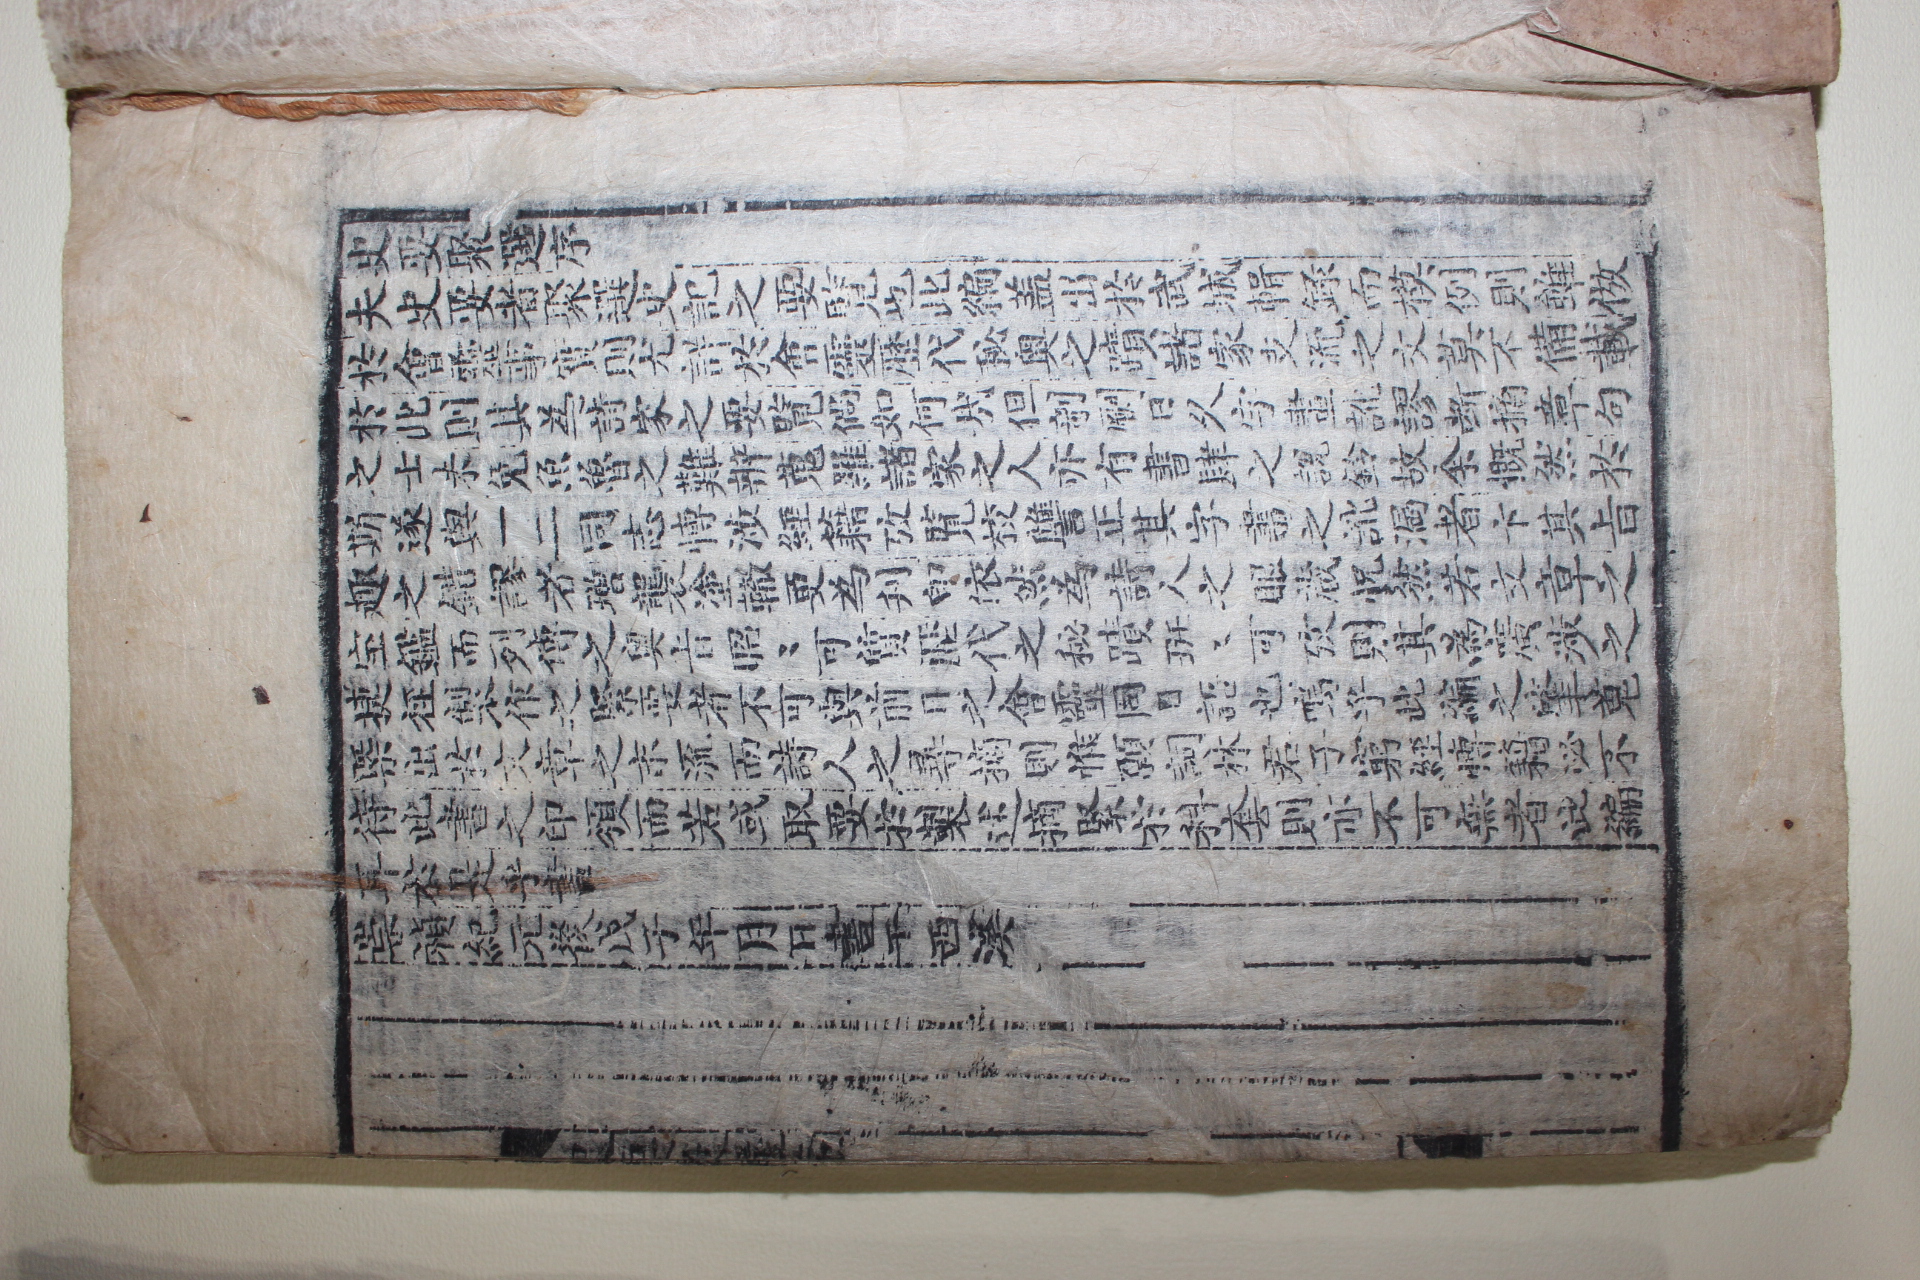 史要聚選序
夫史要者聚選史記之要覽也此編盖出於武城輯録而模例則雖倣
於會靈事實則尤詳於會靈歷代秘奥之蹟諸家支流之文莫不備載
於此則其為詩家之要覽倘如何㢤但剞劂日久字畫訛謬斷摘章句
之士未免魚魯之難辨蒐羅諸家之人亦有書肆之說鈴故余慨然於
斯遂與一二同志愽涉經籍攷覧校讐正其字書之訛漏者卞其㫖
趣之錯謬者璔襲塗轍更為刋印依然為詩人之眼藏怳然若文章之
宝鑑而列傳之奥㫖昭〻可質歷代之秘蹟班〻可攷則其為廣涉之
捷徑制作之緊要者不可與前日之會靈同日語也嗚乎此編之肇蒐
槩出於文章之末流而詩人之尋摘則惟願詞林君子窮經愽籍必不
待此書之印頒而若或取要於製述摘緊於科套則亦不可無者此編
耳於是乎書
崇禎紀元後戊子年月日書于西溪